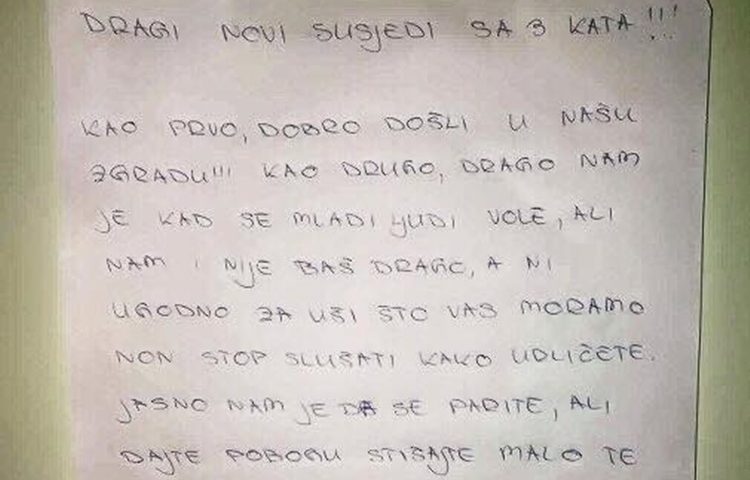 DRAGI NOVI SUSJEDI SA 3 KATA!!!
KAO PRVO, DOBRO DOŠLI U NAŠU
ZGRADU!!! KAO DRUGO, DRAGO NAM
JE KAD SE MLADI LJUDI VOLE, ALI
NAM I NIJE BAŠ DRAGO, A NI
UGODNO ZA UŠI ŠTO VAS MORAMO
NON STOP SLUŠATI KAKO UDLIČETE.
JASNO NAM JE DA SE PARITE, ALI
DAJTE POBOGU STIŠAJTE MALO TE